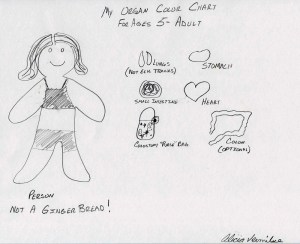 My Organ Color Chart
For Ages 5- Adult
Lungs
(Not Elm Trunks)
Stomach
Small Intestine
Heart
Colostomy "Purse" Bag
Colon
(Optional)
Person
Not A Ginger Bread!